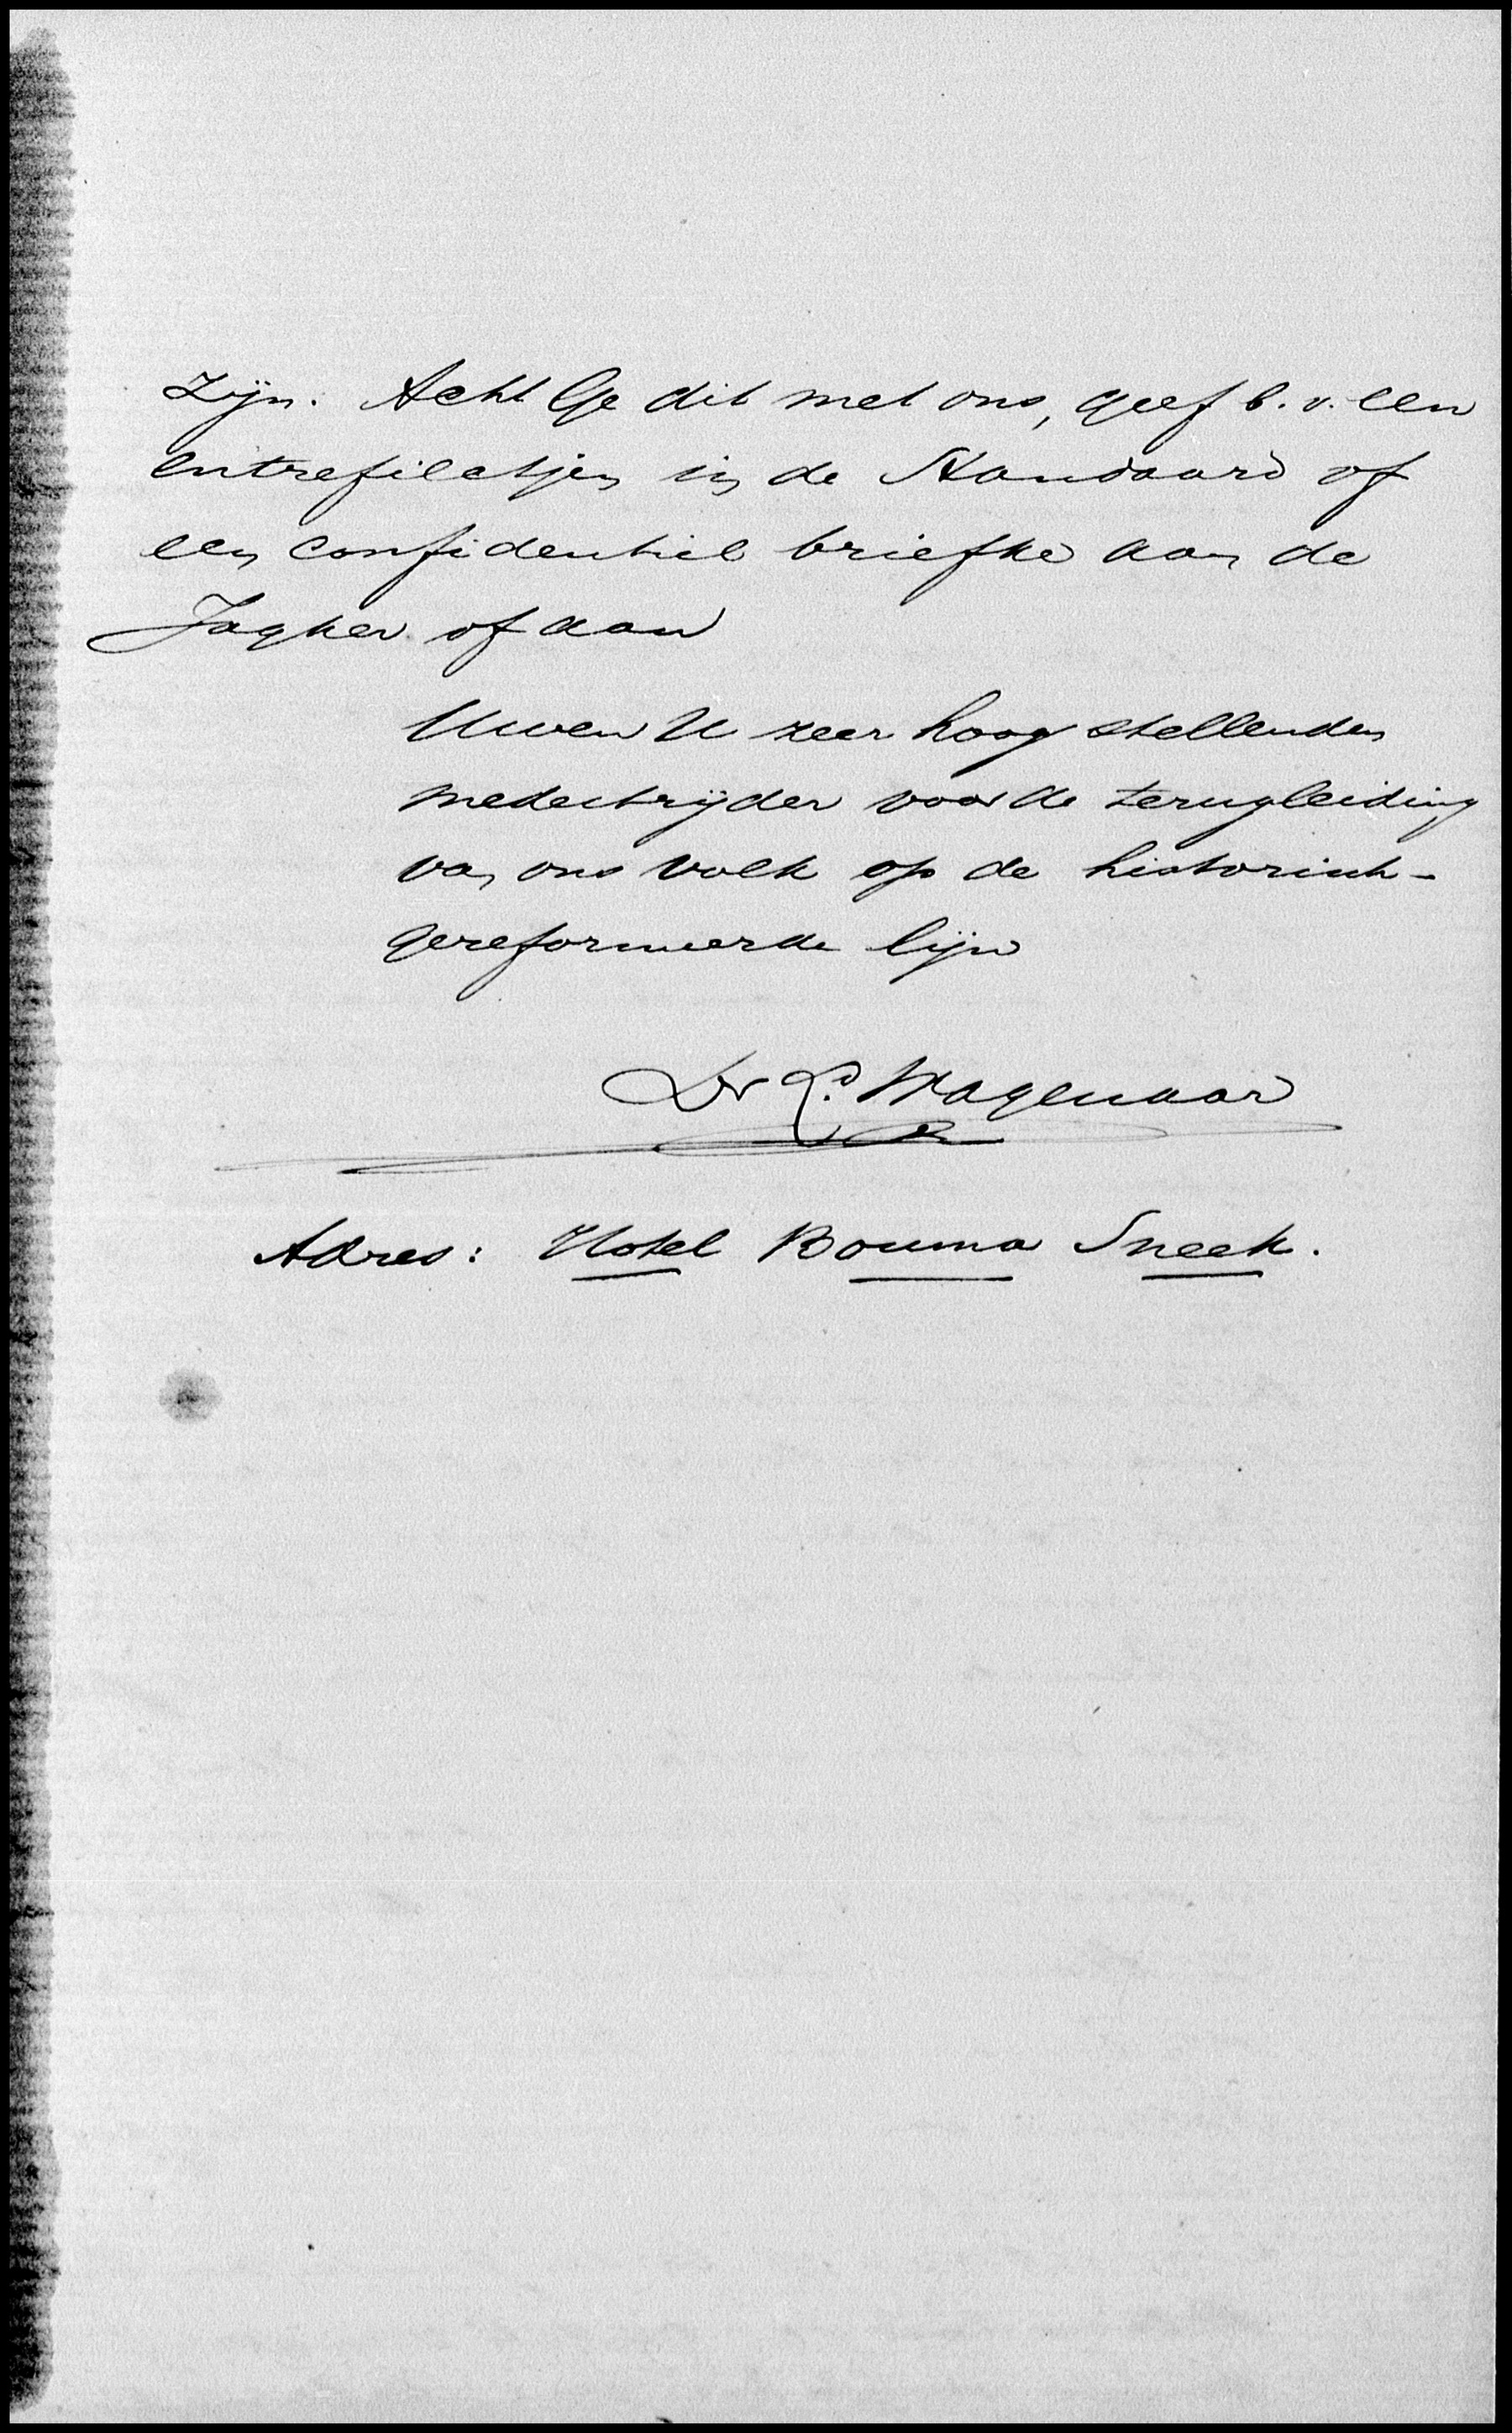 zijn. Acht Ge dit met ons, geef b.v. een
entrefiletjen in de Standaard of
een confidentiel briefke aan de
Jagher of aan
Uwen U zeer hoog stellenden
medestrijder voor de terugleiding
van ons volk op de historisch-
gereformeerde lijn
Dr L. Wagenaar
Adres: Hotel Bouma Sneek.